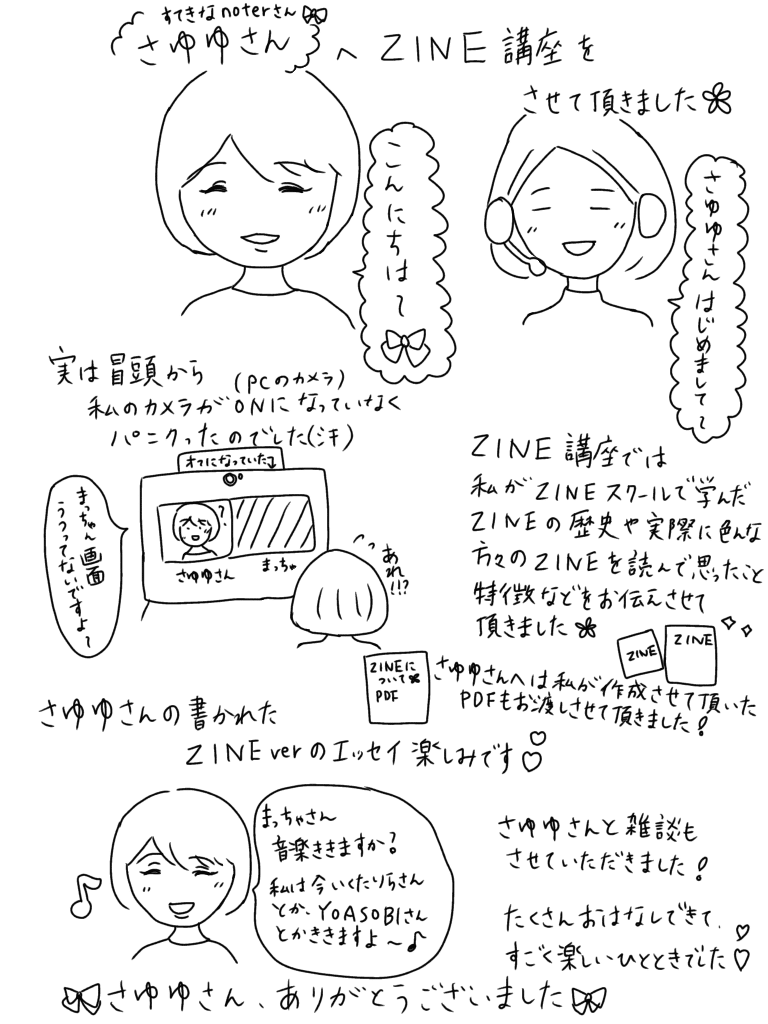 すてきなnoterさん
さゆゆさん
へ ZINE 講座を
させて頂きました
こんにちは〜
さゆゆさん はじめまして〜
実は冒頭から
(PCのカメラ)
私のカメラがONになっていなく
パニクったのでした(汗)
オフになっていた
まっちゃん画面
うつってないですよ〜
?
さゆゆさん
まっちゃ
あれ!!?
ZINE 講座では
私がZINEスクールで学んだ
ZINEの歴史や実際に色んな
方々のZINEを読んで思ったこと
特徴などをお伝えさせて
頂きました
ZINE
ZINE
ZINEに
ついて
PDF
さゆゆさんへは私が作成させて頂いた
PDFもお渡しさせて頂きました!
さゆゆさんの書かれた
ZINE verのエッセイ楽しみです♡
まっちゃさん
音楽ききますか?
私は今いくたりらさん
とか、YOASOBIさん
とかききますよ〜♪
さゆゆさんと雑談も
させていただきました!
たくさんおはなしできて、
すごく楽しいひとときでした♡
さゆゆさん、ありがとうございました